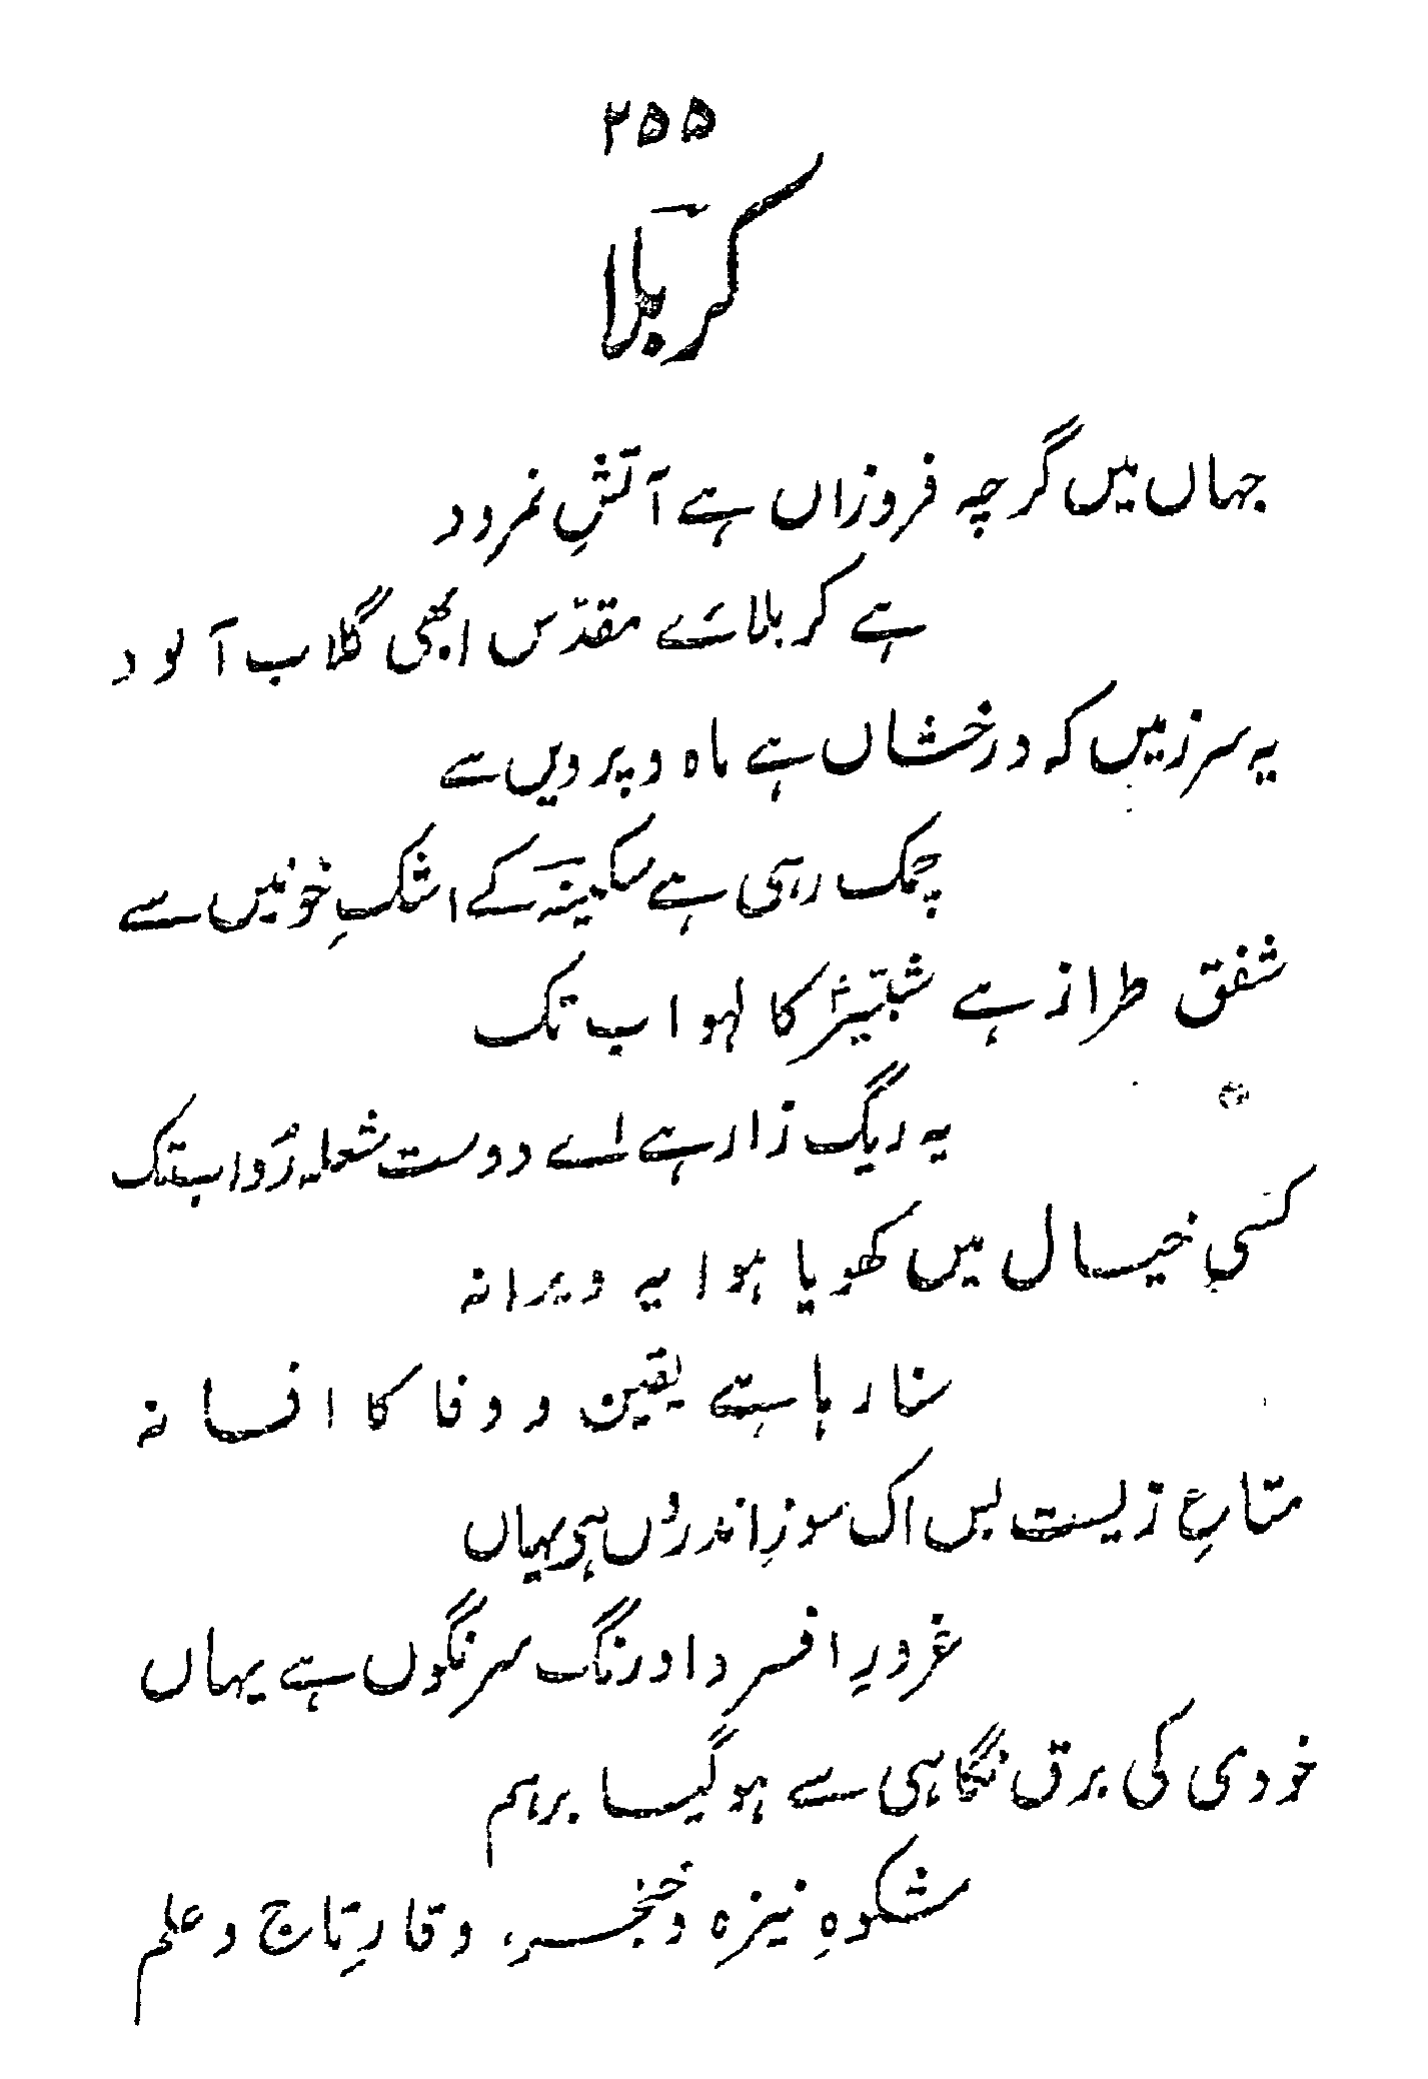 ۲۵۵
کربلا
جہاں میں گرچہ فروزاں ہے آتشِ نمرود
ہے کربلائے مقدّس ابھی گلاب آلود
یہ سرزمیں کہ درخشاں ہے ماہ و پرویں سے
چمک رہی ہے سکینہؓ کے اشکِ خونیں سے
شفق طراز ہے شبّیرؓ کا لہو اب تک
یہ ریگ زار ہے اے دوست شعلہ رُو اب تک
کسی خیال میں کھویا ہوا یہ ویرانہ
سنا رہا ہے یقین و وفا کا افسانہ
متاعِ زیست بس اک سوزِ اندروں ہی یہاں
غرورِ افسر و اورنگ سرنگوں ہے یہاں
خودی کی برق نگاہی سے ہو گیا برہم
شکوہِ نیزہ و خنجر، وقارِ تاج و علم